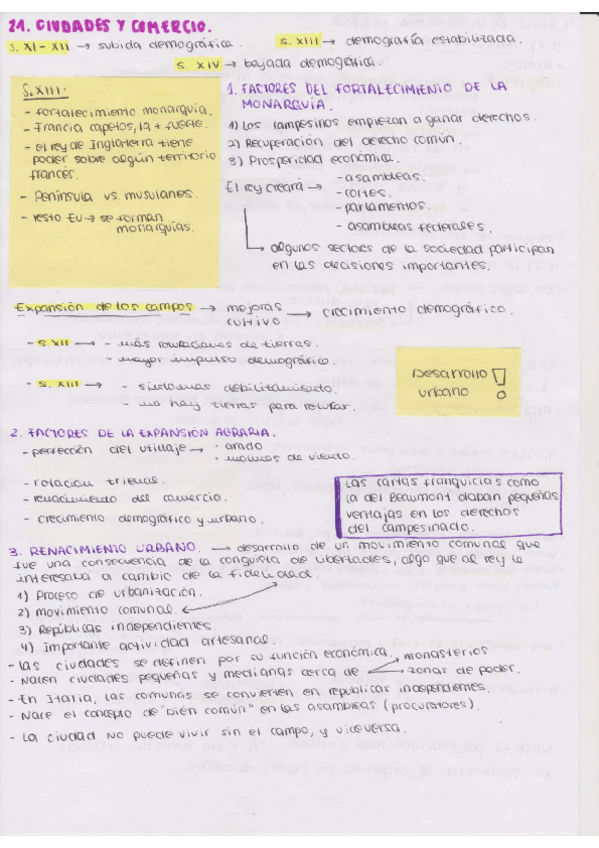 21. CIUDADES Y COMERCIO.
S. XI - XII → subida demográfica. S. XIII → demografía estabilizada.
S. XIV → bajada demográfica.
S. XIII -
- Fortalecimiento monarquía.
- Francia capetos, la + fuerte.
- el rey de Inglaterra tiene
poder sobre algún territorio
francés.
- Península vs. musulanes.
- resto EU → se forman
monarquías.
1. FACTORES DEL FORTALECIMIENTO DE LA
MONARQUÍA.
1) Los campesinos empiezan a ganar derechos.
2) Recuperación del derecho común.
3) Prosperidad económica.
El rey creará → - asambleas.
- cortes.
- parlamentos.
- asambleas federales.
→ algunos sectores de la sociedad participan
en las decisiones importantes.
Expansión de los campos → mejoras cultivo → crecimiento demográfico.
- S. XII → - más roturaciones de tierras.
- mayor impulso demográfico
- S. XIII → - síntomas debilitamiento.
- no hay tierras para roturar.
Desarrollo urbano!
2. FACTORES DE LA EXPANSIÓN AGRARIA.
- perfección del utillaje > - arado
- molinos de viento.
- rotación trienal.
- renacimiento del comercio.
- crecimiento demográfico y urbano.
Las cartas franquicias como
la del Beaumont daban pequeñas
ventajas en los derechos
del campesinado.
3. RENACIMIENTO URBANO. → desarrollo de un movimiento comunal que
fue una consecuencia de la conquista de libertades, algo que al rey le
interesaba a cambio de la fidelidad.
1) Proceso de urbanización.
2) movimiento comunal.
3) Repúblicas independientes.
4) Importante actividad artesanal.
- Las ciudades se definen por su función económica.
- Nacen ciudades pequeñas y medianas cerca de → monasterios
→ zonas de poder.
- En Italia, las comunas se convierten en repúblicas independientes.
- Nace el concepto de "bien común" en las asambleas (procuratores).
- La ciudad no puede vivir sin el campo, y viceversa.